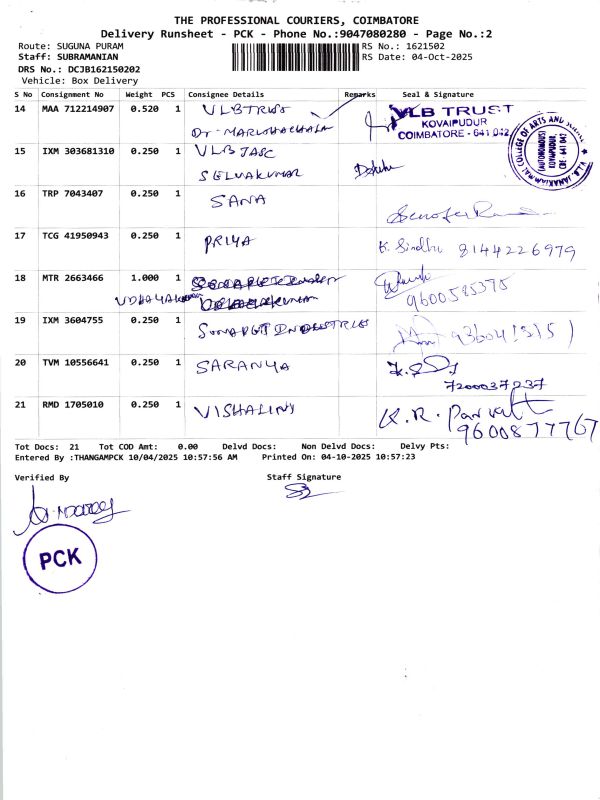 THE PROFESSIONAL COURIERS, COIMBATORE
Delivery Runsheet - PCK - Phone No.:9047080280 - Page No.:2
Route: SUGUNA PURAM
RS No.: 1621502
Staff: SUBRAMANIAN
RS Date: 04-Oct-2025
DRS No.: DCJB162150202
Vehicle: Box Delivery
S No Consignment No Weight PCS Consignee Details Remarks Seal & Signature
14 MAA 712214907 0.520 1 VLBTRUST
VLB TRUST
KOVAIPUDUR
COIMBATORE - 641 042
15 IXM 303681310 0.250 1 VLB JASC
SELVAKUMAR
16 TRP 7043407 0.250 1 SANA
17 TCG 41950943 0.250 1 PRIYA K. Sindhu 8144226979
18 MTR 2663466 1.000 1
UDHAYAKUMAR 9600585375
19 IXM 3604755 0.250 1 SUNARGT INDUSTRIES
20 TVM 10556641 0.250 1 SARANYA
7200037237
21 RMD 1705010 0.250 1 VISHALINI K.R. Parvath
9600877767
Tot Docs: 21 Tot COD Amt: 0.00 Delvd Docs: Non Delvd Docs: Delvy Pts:
Entered By :THANGAMPCK 10/04/2025 10:57:56 AM Printed On: 04-10-2025 10:57:23
Verified By Staff Signature
PCK